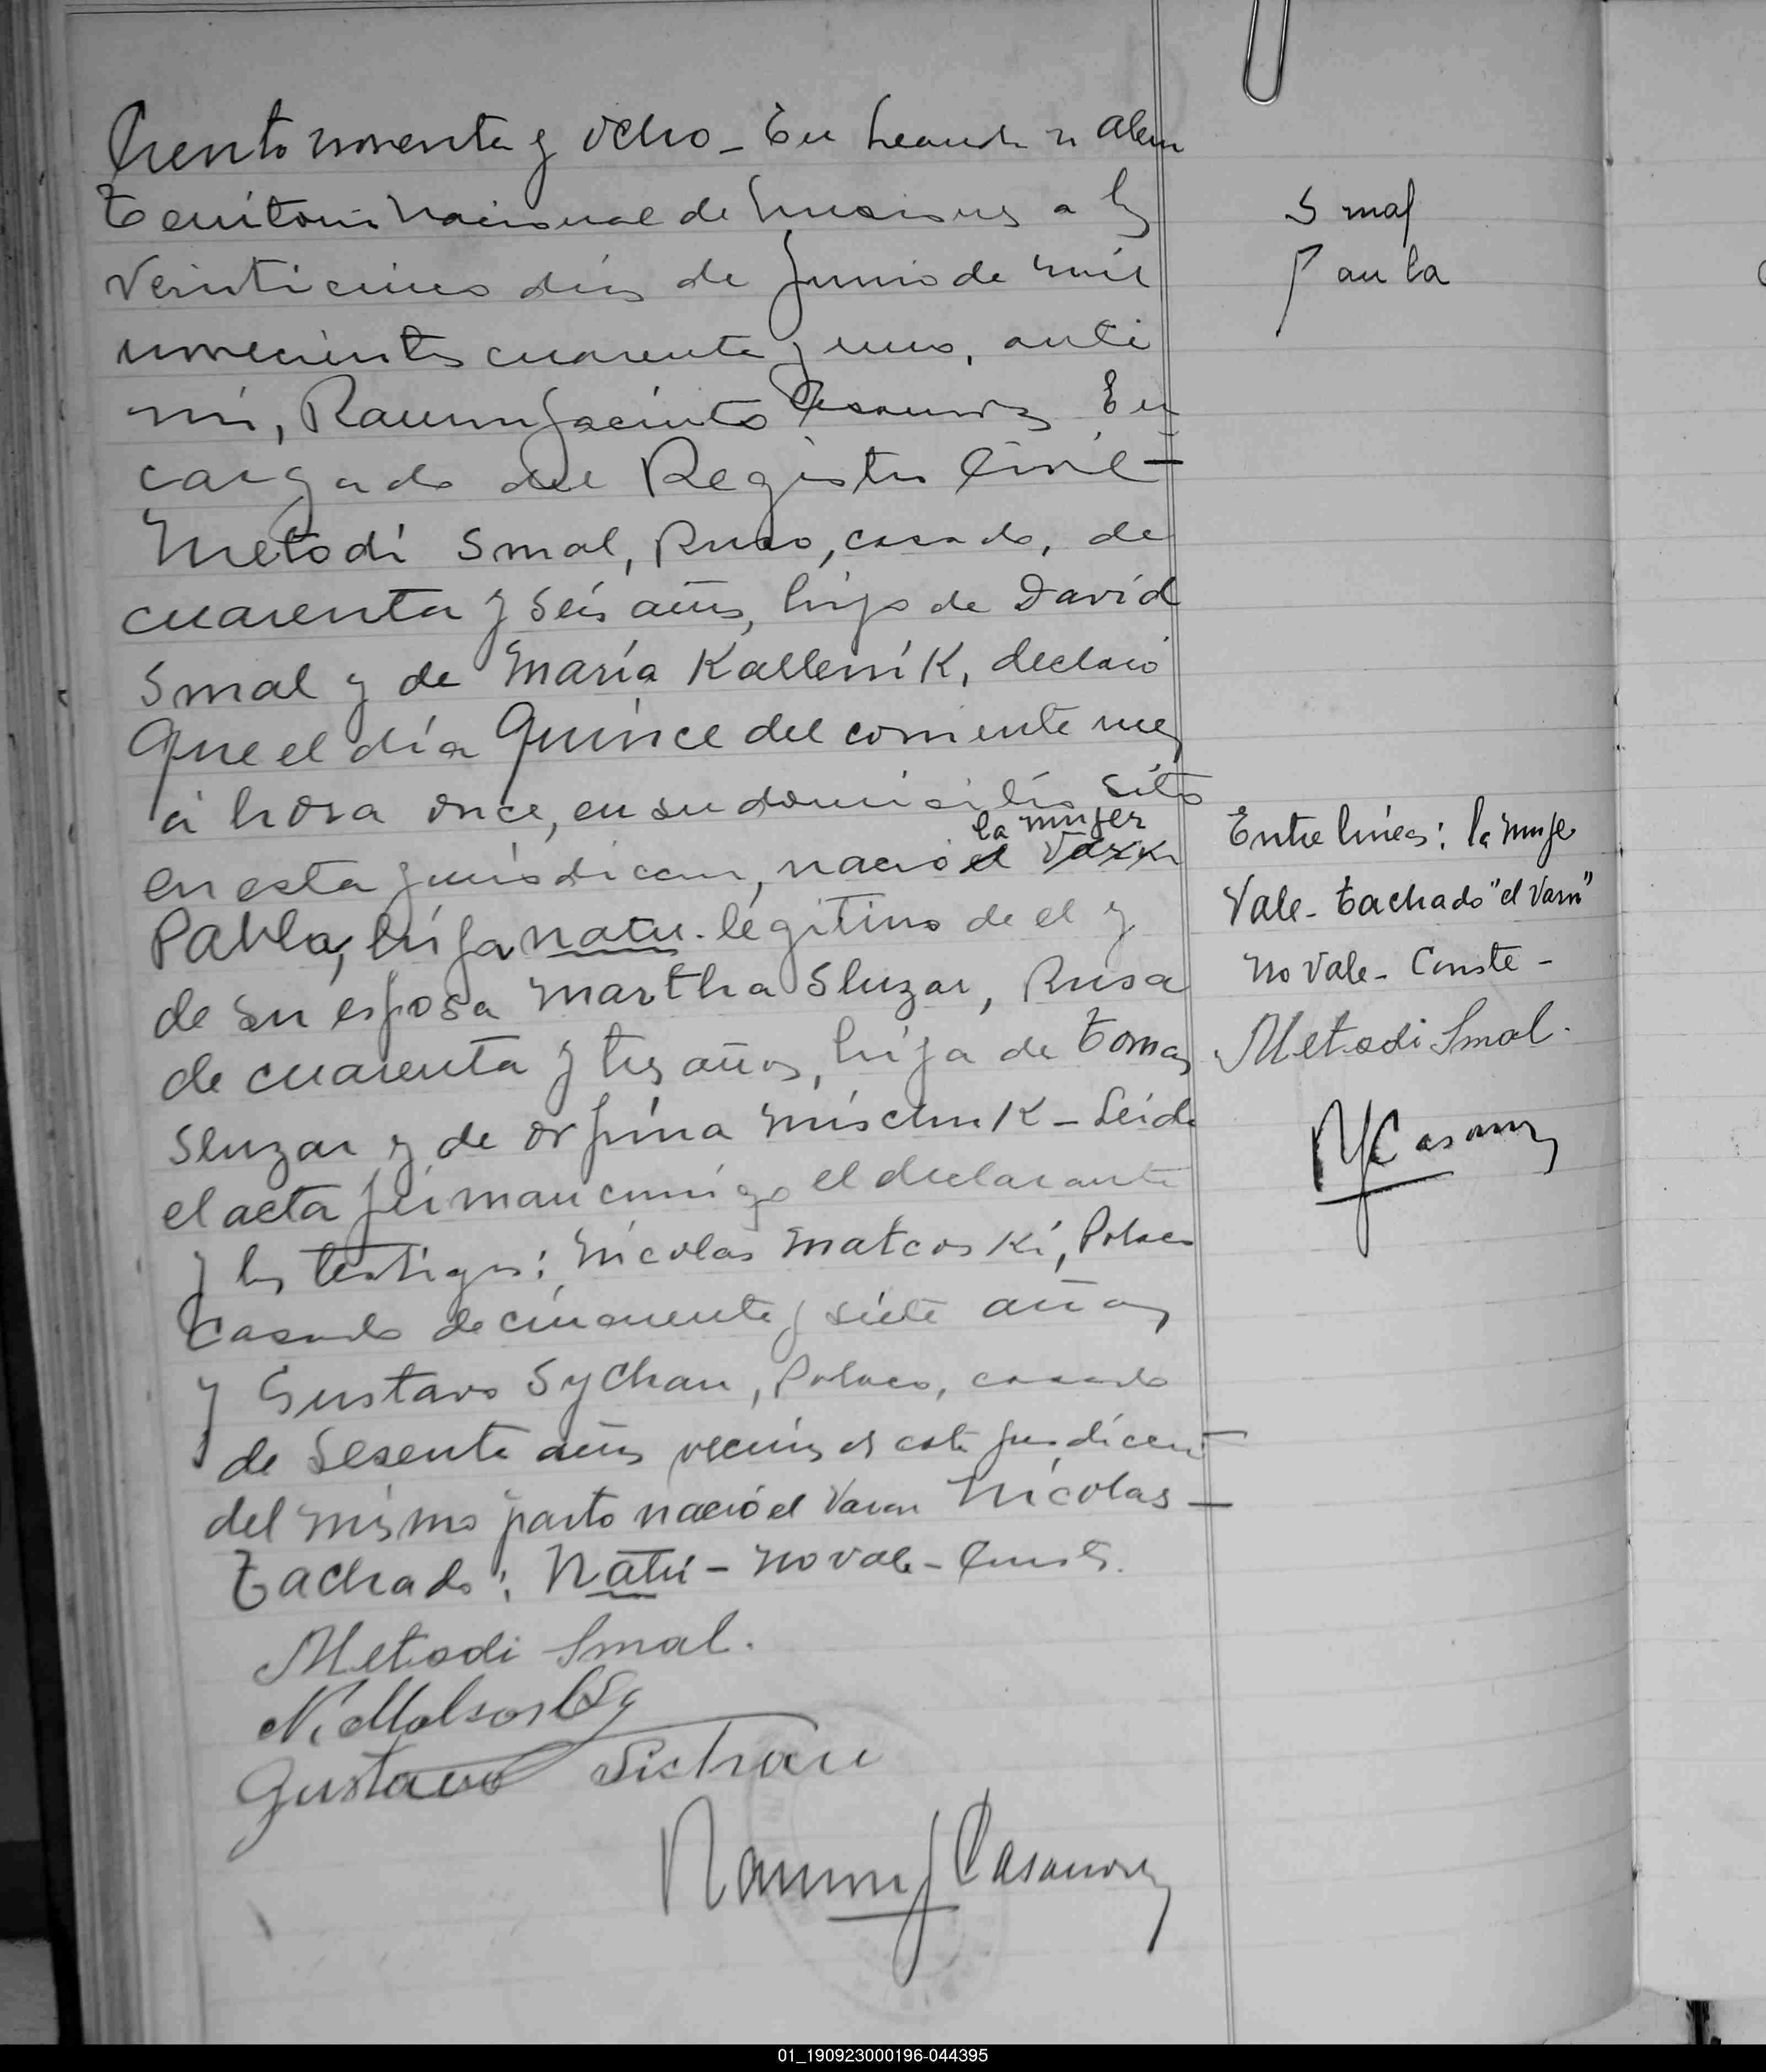 Ciento noventa y ocho - En Leandro N Alem
Territorio Nacional de Misiones a los
veinticinco dias de Junio de mil
novecientos cuarenta y uno, ante
mi, Ramon Jacinto Casanova En
cargado del Registro Civil -
Metodi Smal, Ruso, casado, de
cuarenta y seis años, hijo de David
Smal y de María Kallenik, declaró
Que el día Quince del corriente mes
a hora once, en su domicilio sito
la mujer
en esta jurisdiccion, nació el Varon
Pabla, hija natu. legitimo de el y
de su esposa Martha Sluzar, Rusa
de cuarenta y tres años, hija de Tomas
Sluzar y de Orfina Mischuk - Leida
el acta firman conmigo el declarante
y los testigos: Nicolas Matcoski, Polaco
Casado de cincuenta y siete años
y Gustavo Sychau, Polaco, casado
de sesenta años vecinos de esta jurisdiccion
del mismo parto nació el Varon Nicolas -
Tachado: Natu - no vale - Conste.
Metodi Smal.
Gustavo Sichau
Ramon J Casanova
Smal
Paula
Entre lineas: la mujer
Vale - Tachado "el Varon"
no vale - Conste -
Metodi Smal.
RJCasanova
01_190923000196-044395